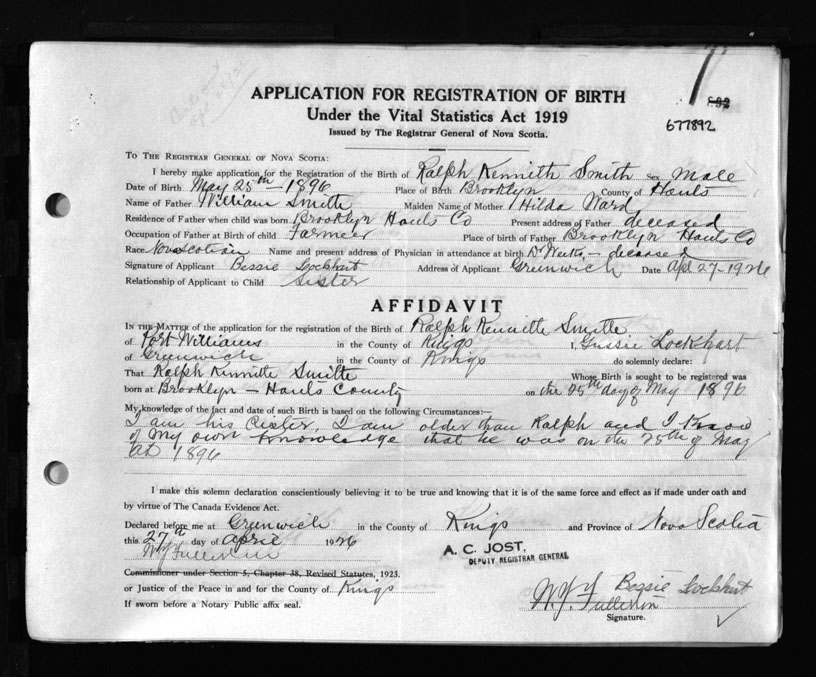 APPLICATION FOR REGISTRATION OF BIRTH
Under the Vital Statistics Act 1919
Issued by The Registrar General of Nova Scotia.
677892
TO THE REGISTRAR GENERAL OF NOVA SCOTIA:
I hereby make application for the Registration of the Birth of Ralph Kennith Smith Sex Male
Date of Birth May 25th - 1896 Place of Birth Brooklyn County of Hants
Name of Father William Smith Maiden Name of Mother Hilda Ward
Residence of Father when child was born Brooklyn Hants Co Present address of Father deceased
Occupation of Father at Birth of child Farmer Place of birth of Father Brooklyn Hants Co
Race Nova Scotian Name and present address of Physician in attendance at birth Dr Weeks - deceased
Signature of Applicant Bessie Lockhart Address of Applicant Greenwich Date Apl 27-1926
Relationship of Applicant to Child Sister
AFFIDAVIT
IN THE MATTER of the application for the registration of the Birth of Ralph Kennith Smith
of Port Williams in the County of Kings I, Lockhart
of Greenwich in the County of Kings do solemnly declare:
That Ralph Kinnith Smith Whose Birth is sought to be registered was
born at Brooklyn - Hants County on the 25th day of May 1896
My knowledge of the fact and date of such Birth is based on the following Circumstances:—
I am his Cister, I am older than Ralph and I Know
of my own knowledge that he was on the 25th of May
AD 1896
I make this solemn declaration conscientiously believing it to be true and knowing that it is of the same force and effect as if made under oath and
by virtue of The Canada Evidence Act.
Declared before me at Greenwich in the County of Kings and Province of Nova Scotia
this 27th day of april 1926
W.Y. Fullerton
A. C. JOST,
DEPUTY REGISTRAR GENERAL
Commissioner under Section 5, Chapter 38, Revised Statutes, 1923.
or Justice of the Peace in and for the County of Kings
If sworn before a Notary Public affix seal.
Bessie Lockhart
W.Y. Fullerton
Signature.